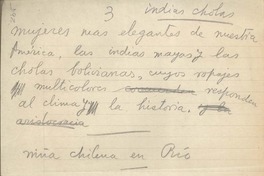 3 indias cholas
mujeres mas elegantes de nuestra
América, las indias mayas y las
cholas bolivianas, cuyos ropajes
multicolores responden
al clima y la historia. y la
aristocracia
niña chilena en Río